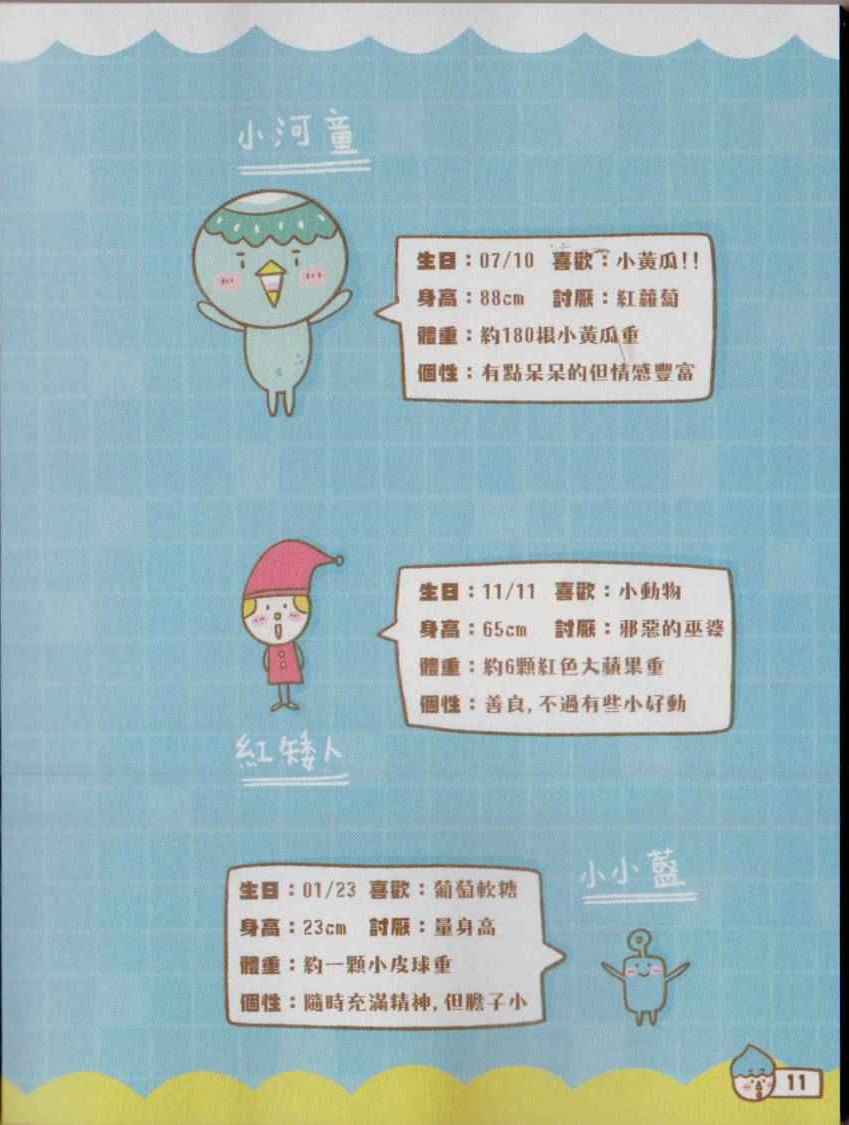 小河童
生日：07/10 喜歡：小黃瓜!!
身高：88cm 討厭：紅蘿蔔
體重：約180根小黃瓜重
個性：有點呆呆的但情感豐富
生日：11/11 喜歡：小動物
身高：65cm 討厭：邪惡的巫婆
體重：約6顆紅色大蘋果重
個性：善良,不過有些小好動
紅矮人
小小藍
生日：01/23 喜歡：葡萄軟糖
身高：23cm 討厭：量身高
體重：約一顆小皮球重
個性：隨時充滿精神,但膽子小
11